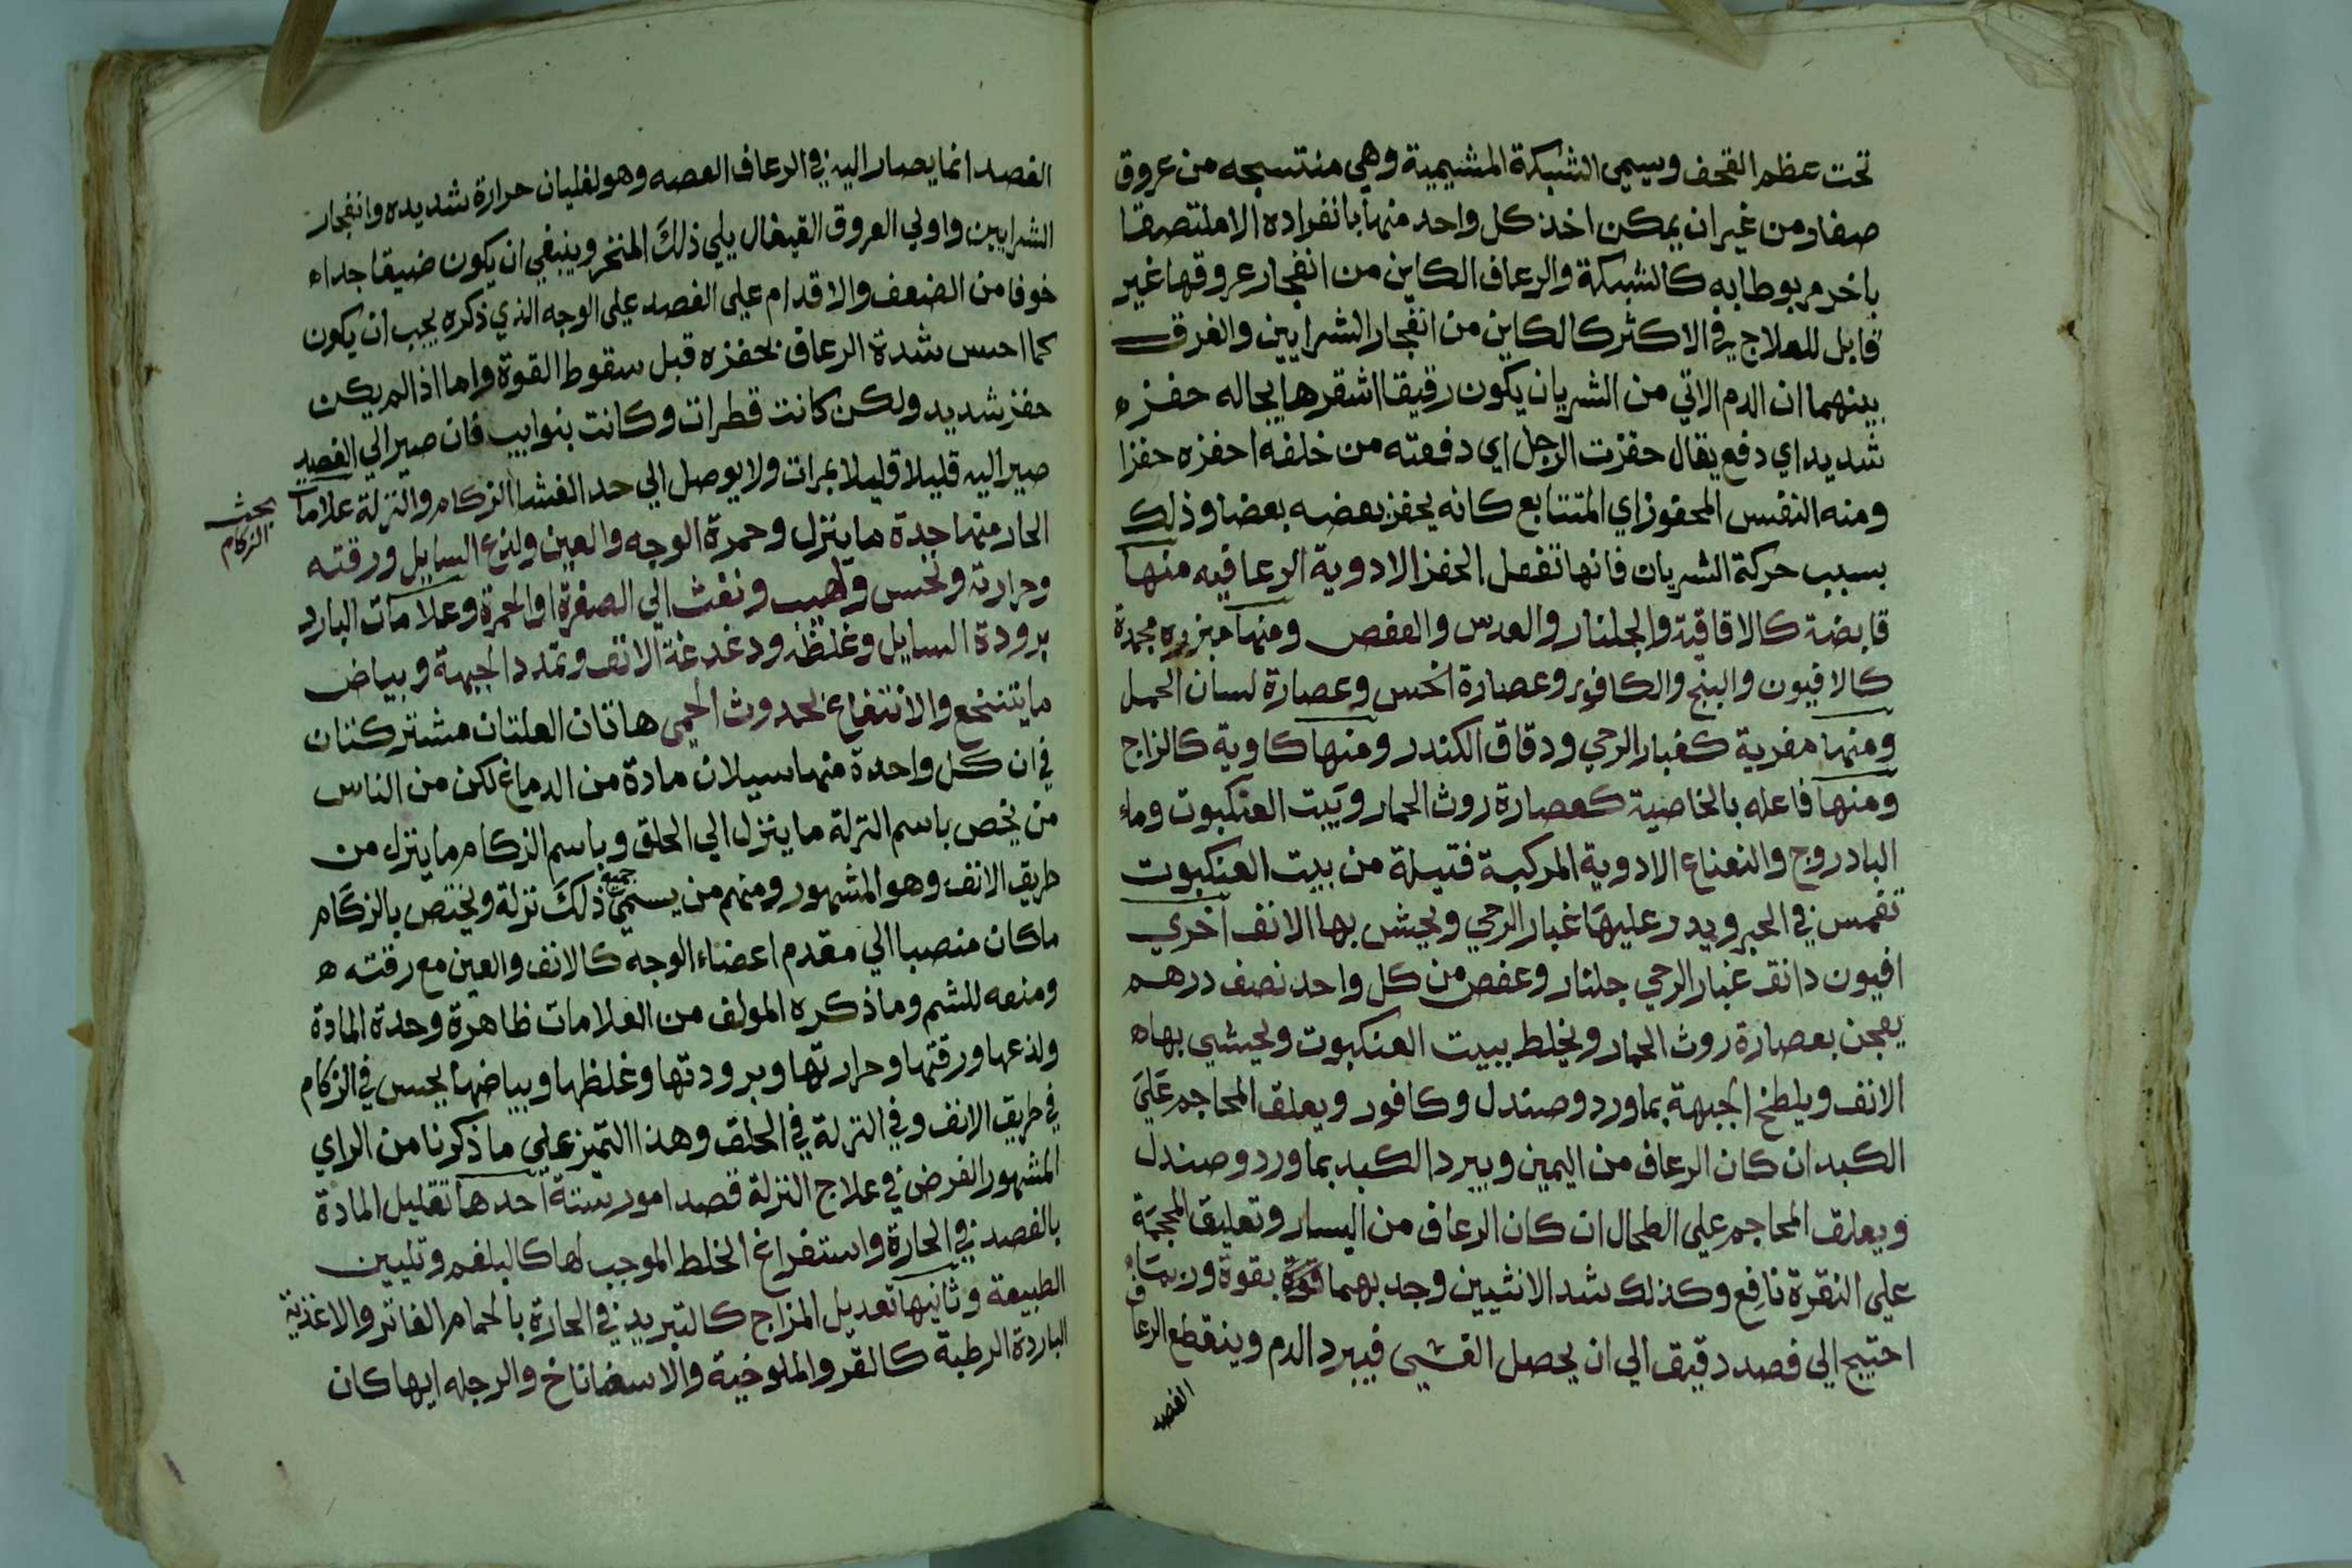 تحت عظم القحف ويسمى الشبكة المشيمية وهي منتسجه من عروق
صغار ومن غير ان يمكن اخذ كل واحد منها بانفراده الا ملتصقا
باخر مربوطا به كالشبكة والرعاف الكاين من انفجار عروقها غير
قابل للعلاج في الاكثر كالكاين من انفجار الشرايين والفرق
بينهما ان الدم الاتي من الشريان يكون رقيقا اشقر ها يحاله حفزه
شديد اي دفع يقال حفزت الرجل اي دفعته من خلفه احفزه حفزا
ومنه النفس المحفوز اي المتتابع كانه يحفز بعضه بعضا وذلك
بسبب حركة الشريان فانها تفعل الحفز الادوية الرعافيه منها
قابضة كالاقاقية والجلنار والعدس والعفص ومنها مبرده مجمدة
كالافيون والبنج والكافور وعصارة الخس وعصارة لسان الحمل
ومنها مغرية كغبار الرحي ودقاق الكندر ومنها كاوية كالزاج
ومنها فاعله بالخاصية كعصارة روث الحمار وبيت العنكبوت وماء
البادروج والنعناع الادوية المركبة فتيلة من بيت العنكبوت
تغمس في الحبر ويدر عليها غبار الرحي ويحش بها الانف اخري
افيون دانق غبار الرحي جلنار وعفص من كل واحد نصف درهم
يعجن بعصارة روث الحمار ويخلط ببيت العنكبوت ويحشي بهاه
الانف ويلطخ الجبهة بماورد وصندل وكافور ويعلق المحاجم علي
الكبد ان كان الرعاف من اليمين ويبرد الكبد بماورد وصندل
ويعلق المحاجم علي الطحال ان كان الرعاف من اليسار وتعليق المحجمة
علي النقرة نافع وكذلك شد الانثيين وجد بهما قوة بقوة وربما
احتيج الي فصد دقيق الي ان يحصل الغشي فيبرد الدم وينقطع الرعاف
الفصد
الفصد انما يصار اليه في الرعاف الصعبه وهو لغليان حرارة شديده وانفجار
الشرايين واولي العروق القيفال يلي ذلك المنخر وينبغي ان يكون ضيقا جداء
خوفا من الضعف والاقدام علي الفصد علي الوجه الذي ذكره يجب ان يكون
كما احس شدة الرعاف بحفزه قبل سقوط القوة واما اذا لم يكن
حفز شديد ولكن كانت قطرات وكانت بنوايب فان صير الي الفصد
صير اليه قليلا قليلا بمرات ولا يوصل الي حد الغشا الزكام والنزلة علامات
بحث
الزكام
الحار منها حدة ما ينزل وحمرة الوجه والعين ولذع السايل ورقته
وحرارته ونخس ولهيب ونفث الي الصفرة او الحمرة وعلامات البارد
برودة السايل وغلظه ودغدغة الانف وتمدد الجبهة وبياض
ما يتنخع والانتفاع بحدوث الحمى هاتان العلتان مشتركتان
في ان كل واحدة منها سيلان مادة من الدماغ لكن من الناس
من يخص باسم النزلة ما ينزل الي الحلق وباسم الزكام ما ينزل من
طريق الانف وهو المشهور ومنهم من يسمي جميع ذلك نزلة ويختص بالزكام
ماكان منصبا الي مقدم اعضاء الوجه كالانف والعين مع رقته ه
ومنعه للشم وما ذكره المولف من العلامات ظاهرة وحدة المادة
ولذعها ورقتها وحرارتها وبرودتها وغلظها وبياضها يحس في الزكام
في طريق الانف وفي النزلة في الحلق وهذا التميز علي ما ذكرنا من الراي
المشهور الغرض في علاج النزلة قصد امور ستة احدها تقليل المادة
بالفصد في الحارة واستفراغ الخلط الموجب لها كالبلغم وتليين
الطبيعة وثانيها تعديل المزاج كالتبريد في الحارة بالحمام الفاتر والاغذية
الباردة الرطبة كالقرع والملوخية والاسفاناخ والرجله ايها كان